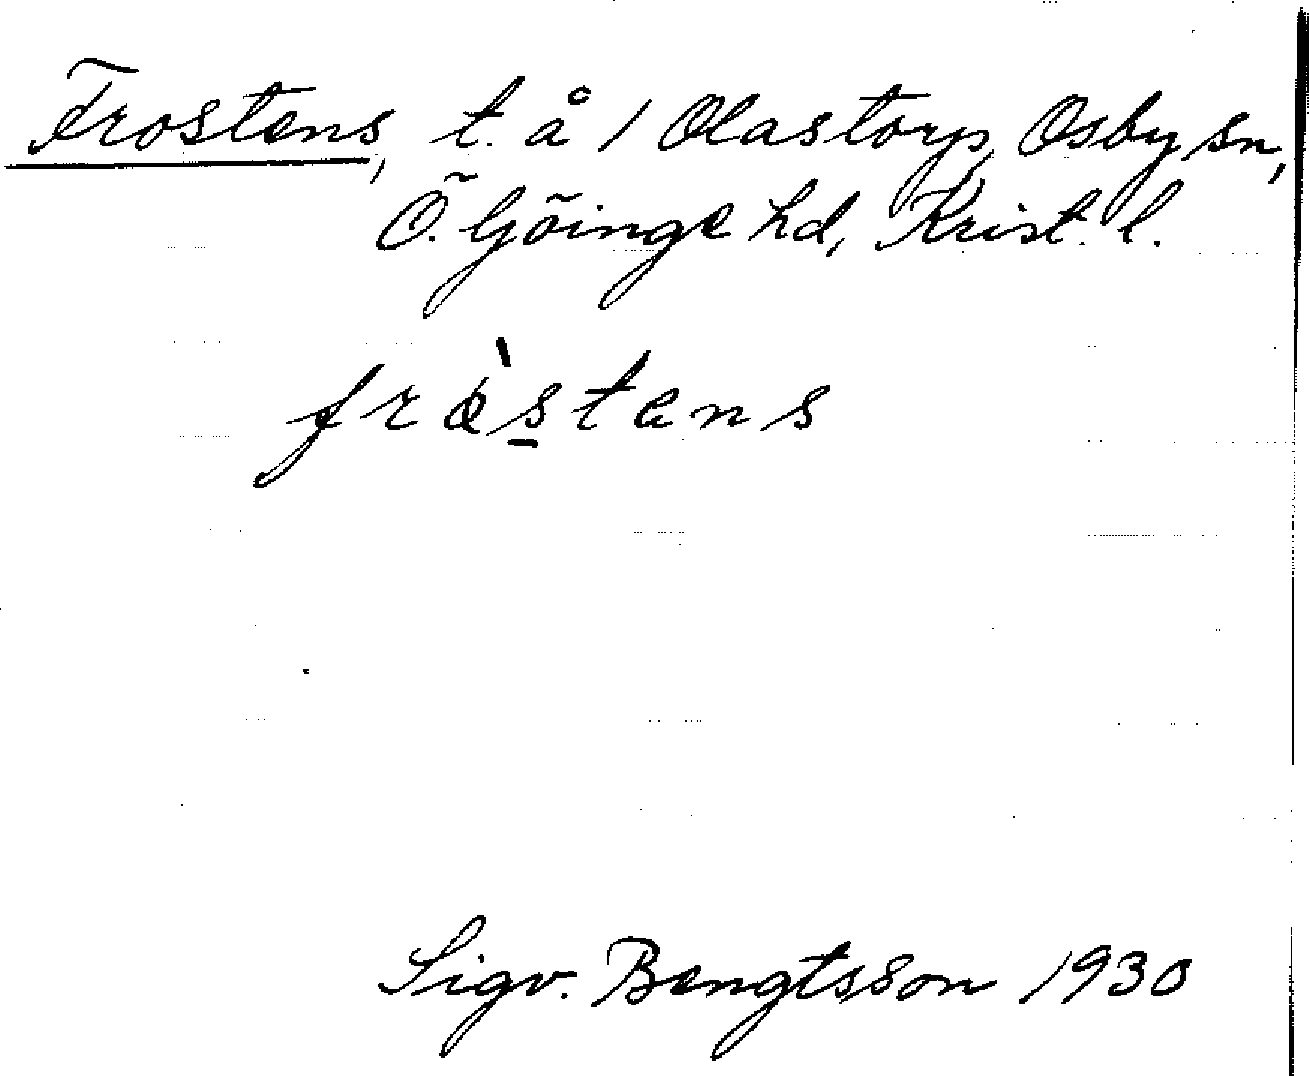 Frostens, t. å 1 Olastorp, Osby sn,
Ö. Göinge hd, Krist. l.
fròstens
Sigv. Bengtsson 1930